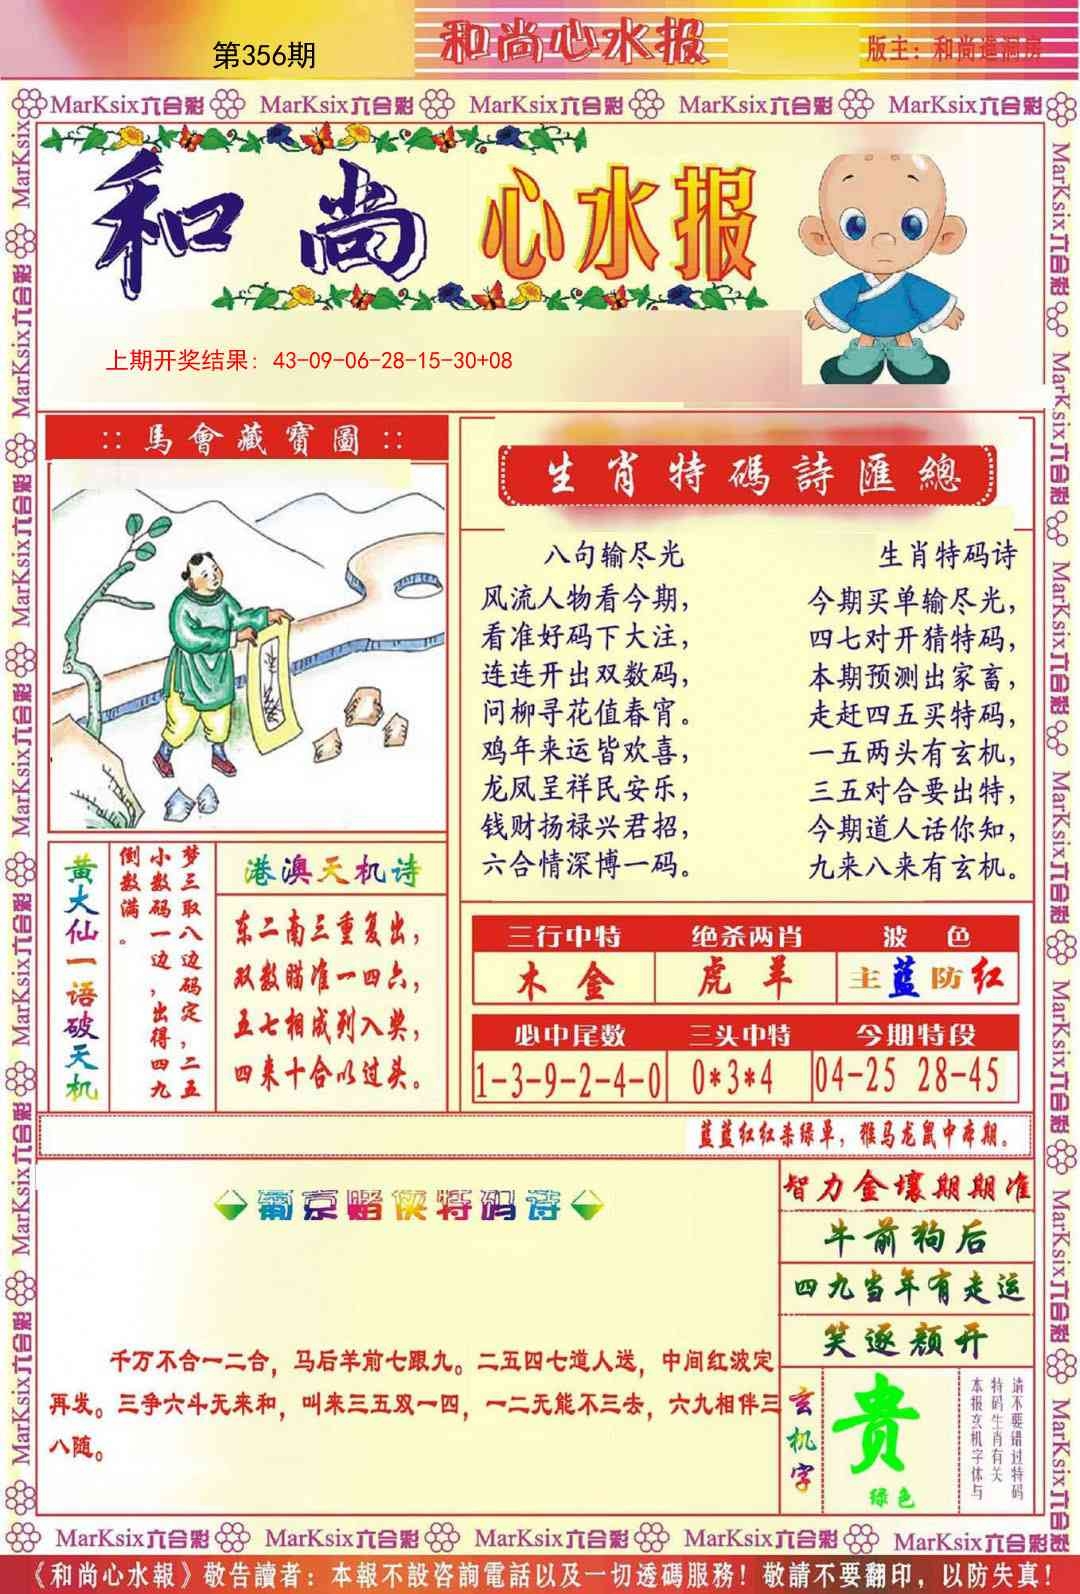 第356期
和尚心水报
版主：和尚造洞房
MarKsix六合彩 MarKsix六合彩 MarKsix六合彩 MarKsix六合彩 MarKsix六合彩
和尚心水报
上期开奖结果：43-09-06-28-15-30+08
::馬會藏寶圖::
生肖特碼詩匯總
八句输尽光
风流人物看今期，
看准好码下大注，
连连开出双数码，
问柳寻花值春宵。
鸡年来运皆欢喜，
龙凤呈祥民安乐，
钱财扬禄兴君招，
六合情深博一码。
生肖特码诗
今期买单输尽光，
四七对开猜特码，
本期预测出家畜，
走赶四五买特码，
一五两头有玄机，
三五对合要出特，
今期道人话你知，
九来八来有玄机。
黄大仙一语破天机
梦三取八边码定，二五
小数码一边，出得四九
倒数满。
港澳天机诗
东二南三重复出，
双数瞄准一四六，
五七相成列入奖，
四来十合以过头。
三行中特 绝杀两肖 波色
木金 虎羊 主蓝防红
必中尾数 三头中特 今期特段
1-3-9-2-4-0 0*3*4 04-25 28-45
蓝蓝红红杀绿单，猴马龙鼠中本期。
葡京赌侠特码诗
千万不合一二合，马后羊前七跟九。二五四七道人送，中间红波定
再发。三争六斗无来和，叫来三五双一四，一二无能不三去，六九相伴三
八随。
智力金壤期期准
牛前狗后
四九当年有走运
笑逐颜开
玄机字
贵
绿色
请不要错过特码
特码生肖有关
本报玄机字体与
MarKsix六合彩 MarKsix六合彩 MarKsix六合彩 MarKsix六合彩 MarKsix六合彩
《和尚心水報》敬告讀者：本報不設咨詢電話以及一切透碼服務！敬請不要翻印，以防失真！